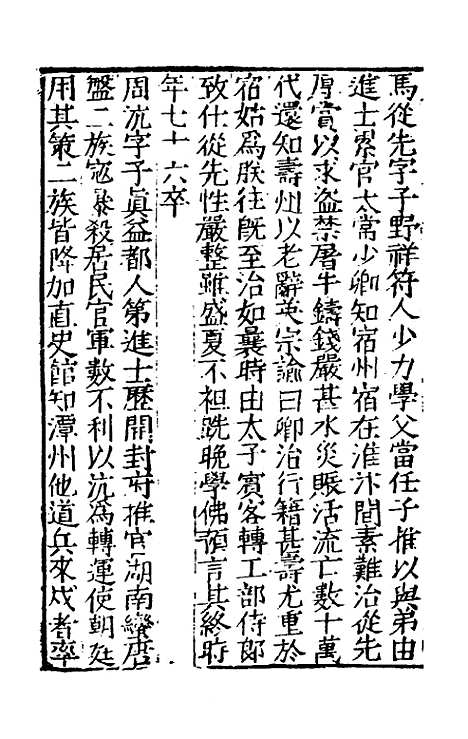 馬從先字子野祥符人少力學父當任子推以與弟由
進士累官太常少卿知宿州宿在淮汴間素難治從先
厚賞以求盜禁屠牛鑄錢嚴甚水災賑活流亡數十萬
代還知壽州以老辭英宗諭曰卿治行籍甚壽尤重於
宿姑爲朕往旣至治如曩時由太子賓客轉工部侍郎
致仕從先性嚴整雖盛夏不袒跣晚學佛預言其終時
年七十六卒
周沆字子眞益都人第進士歷開封府推官湖南蠻唐
盤二族寇暴殺居民官軍數不利以沆為轉運使朝廷
用其策二族皆降加直史館知潭州他道兵來戍者率